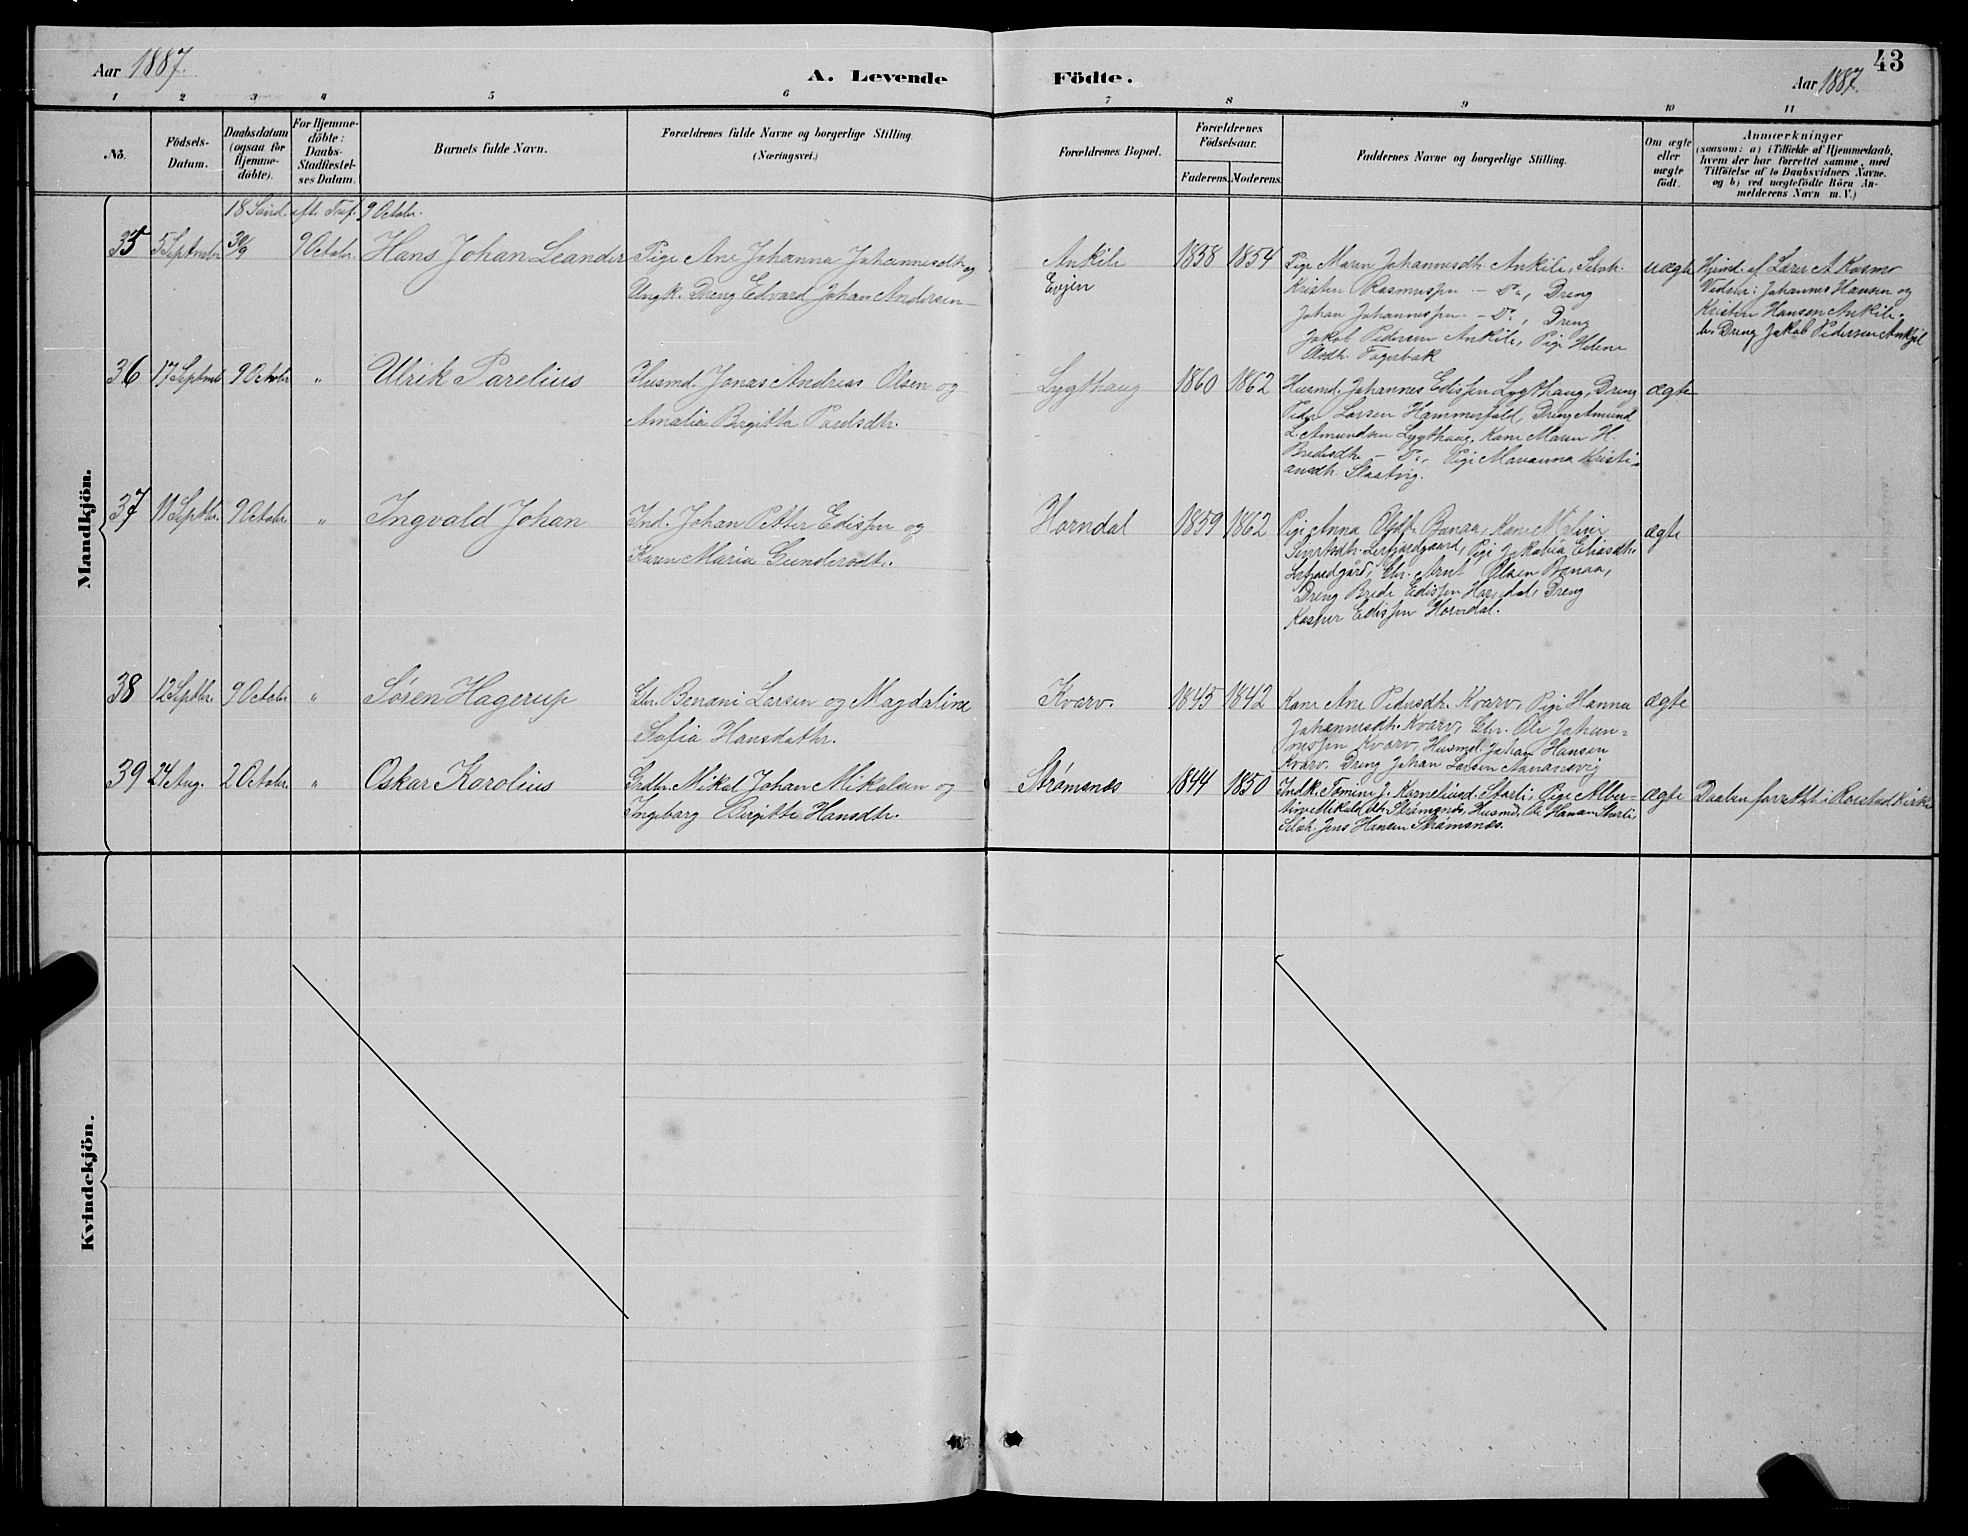 Aar 1887.
A. Levende
Födte.
43
Aar 1887.
1 2 3 4 5 6 7 8 9 10 11
No.
Födsels-
Datum.
Daabsdatum
(ogsaa for
Hjemme-
döbte).
For Hjemme-
döbte:
Daabs-
Stadfæstel-
ses Datum.
Barnets fulde Navn.
Forældrenes fulde Navne og borgerlige Stilling.
(Næringsvei.)
Forældrenes Bopæl.
Forældrenes
Födselsaar.
Faderens. Moderens.
Faddernes Navne og borgerlige Stilling.
Om ægte
eller
uægte
födt.
Anmærkninger
(saasom: a) i Tilfælde af Hjemmedaab,
hvem der har forrettet samme, med
Tilföielse af to Daabsvidners Navne.
og b) ved uægtefödte Börn An-
melderens Navn m. V.)
Mandkjön.
18 Sönd. eft. Tref. 9 Octobr.
35
5 Septmbr
30/9
9 Octobr.
Hans Johan Leander
Pige Ane Johanna Johannesdtr og
Ungk. Dreng Edvard Johan Andersen
Ankile
Evjen
1858
1854
Pige Maren Johannesdtr. Ankile, Selvh.
Kristen Rasmussen - Do, Dreng
Johan Johannessen - Do, Dreng
Jakob Pedersen Ankile, Pige Helene
Olsdtr. Fagerbak
uægte
Hjemd. af Lærer A Kosmo
Vidner: Johannes Hansen og
Kristen Hansen Ankile.
b. Dreng Jakob Pedersen Ankjel
36
17 Septmb
9 Octobr
"
Ulrik Parelius
Husmd. Jonas Andreas Olsen og
Amalia Birgitta Paulsdtr.
Lygthaug
1860
1862
Husmd. Johannes Edissen Lygthaug, Dreng
Peder Larsen Hammerfald, Dreng Amund
L. Amundsen Lygthaug, Kone Maren H.
Bredesdtr. - Do, Pige Maranna Kristi-
ansdtr. Slaatvig.
ægte
37
11 Septbr.
9 Octobr.
"
Ingvald Johan
Ind. Johan Petter Edissen og
Karen Maria Gundersdtr.
Horndal
1859
1862
Pige Anna Olsdtr. Bonaa, Kone
Pige Jakobia Eliasdtr.
Gbr. Arnt Olsen Bonaa,
Dreng Brede Edissen Horndal, Dreng
Kasper Edissen Horndal.
ægte
38
12 Septbr.
9 Octobr
"
Søren Hagerup
Gbr. Benoni Larsen og Magdalina
Sofia Hansdattr.
Kvarv.
1845
1842
Kone Ane Pedersdtr. Kvarv, Pige Hanna
Johannesdtr. Kvarv, Gbr. Ole Johan-
nessen Kvarv, Husmd. Johan Hansen
Kvarv. Dreng Johan Larsen Aanansvig
ægte
39
24 Aug.
2 Octobr.
"
Oskar Karolius
Grdbr. Mikal Johan Mikalsen og
Ingeborg Birgitte Hansdtr.
Strømsnes
1844
1850
Indk. Tomine J. Korneliusd. Storli, Pige Alber-
tine Mikalsdtr Strømsnes, Husmd. Ole Hansen Storli,
Selvh. Jens Hansen Strømsnes.
ægte
Daaben forrettet i Rørstad Kirke
Kvindekjön.